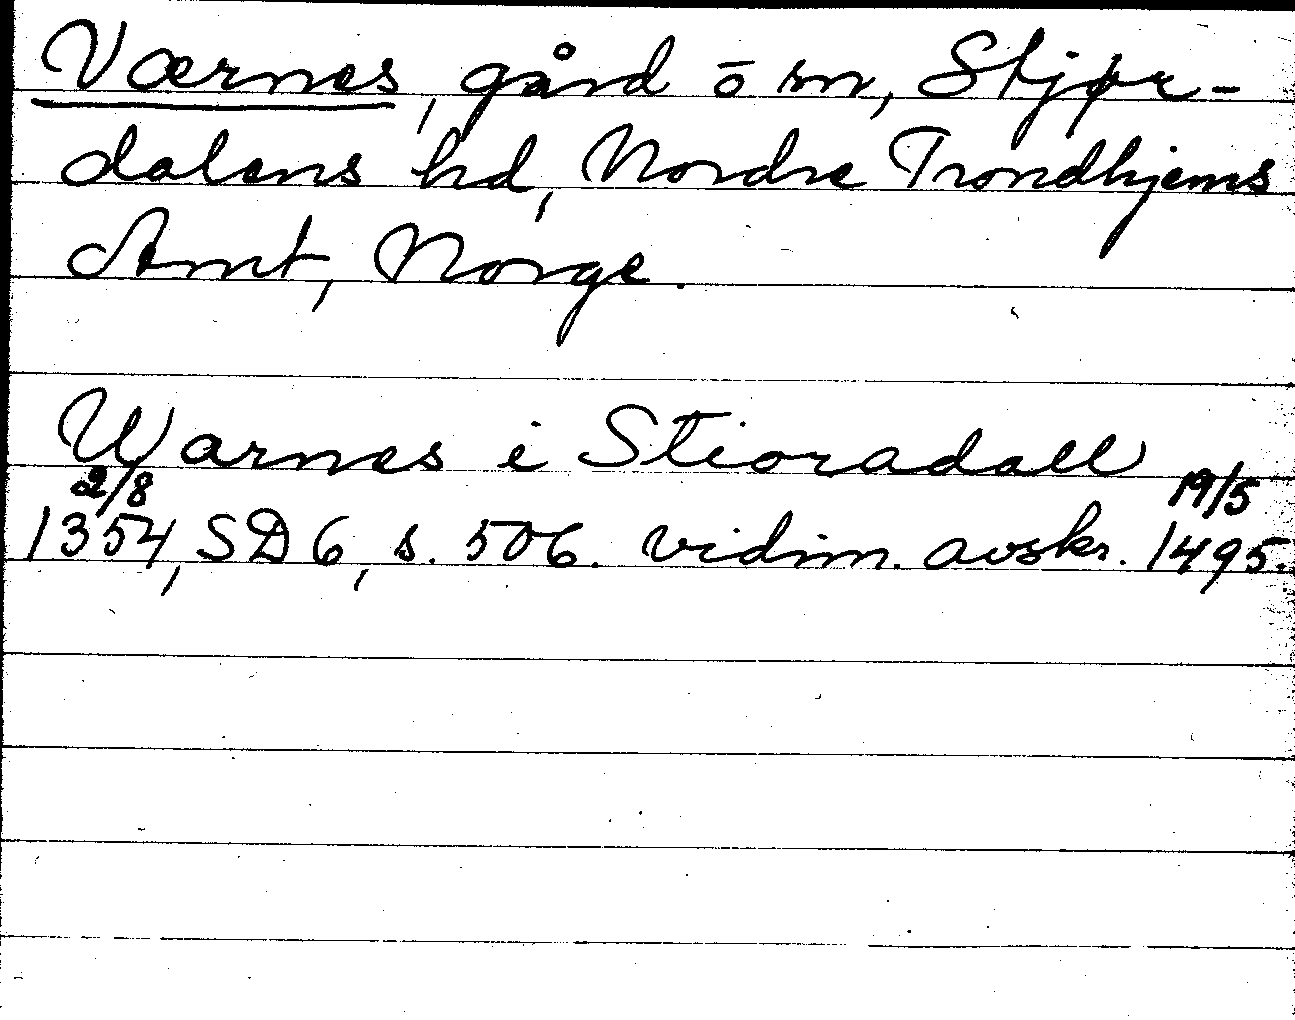 Værnes, gård ō sn, Stjør-
dalens hd, Nordre Trondhjems
Amt, Norge.
Warnes i Stioradall
2/8 19/5
1354, SD 6, s. 506. vidim. avskr. 1495.